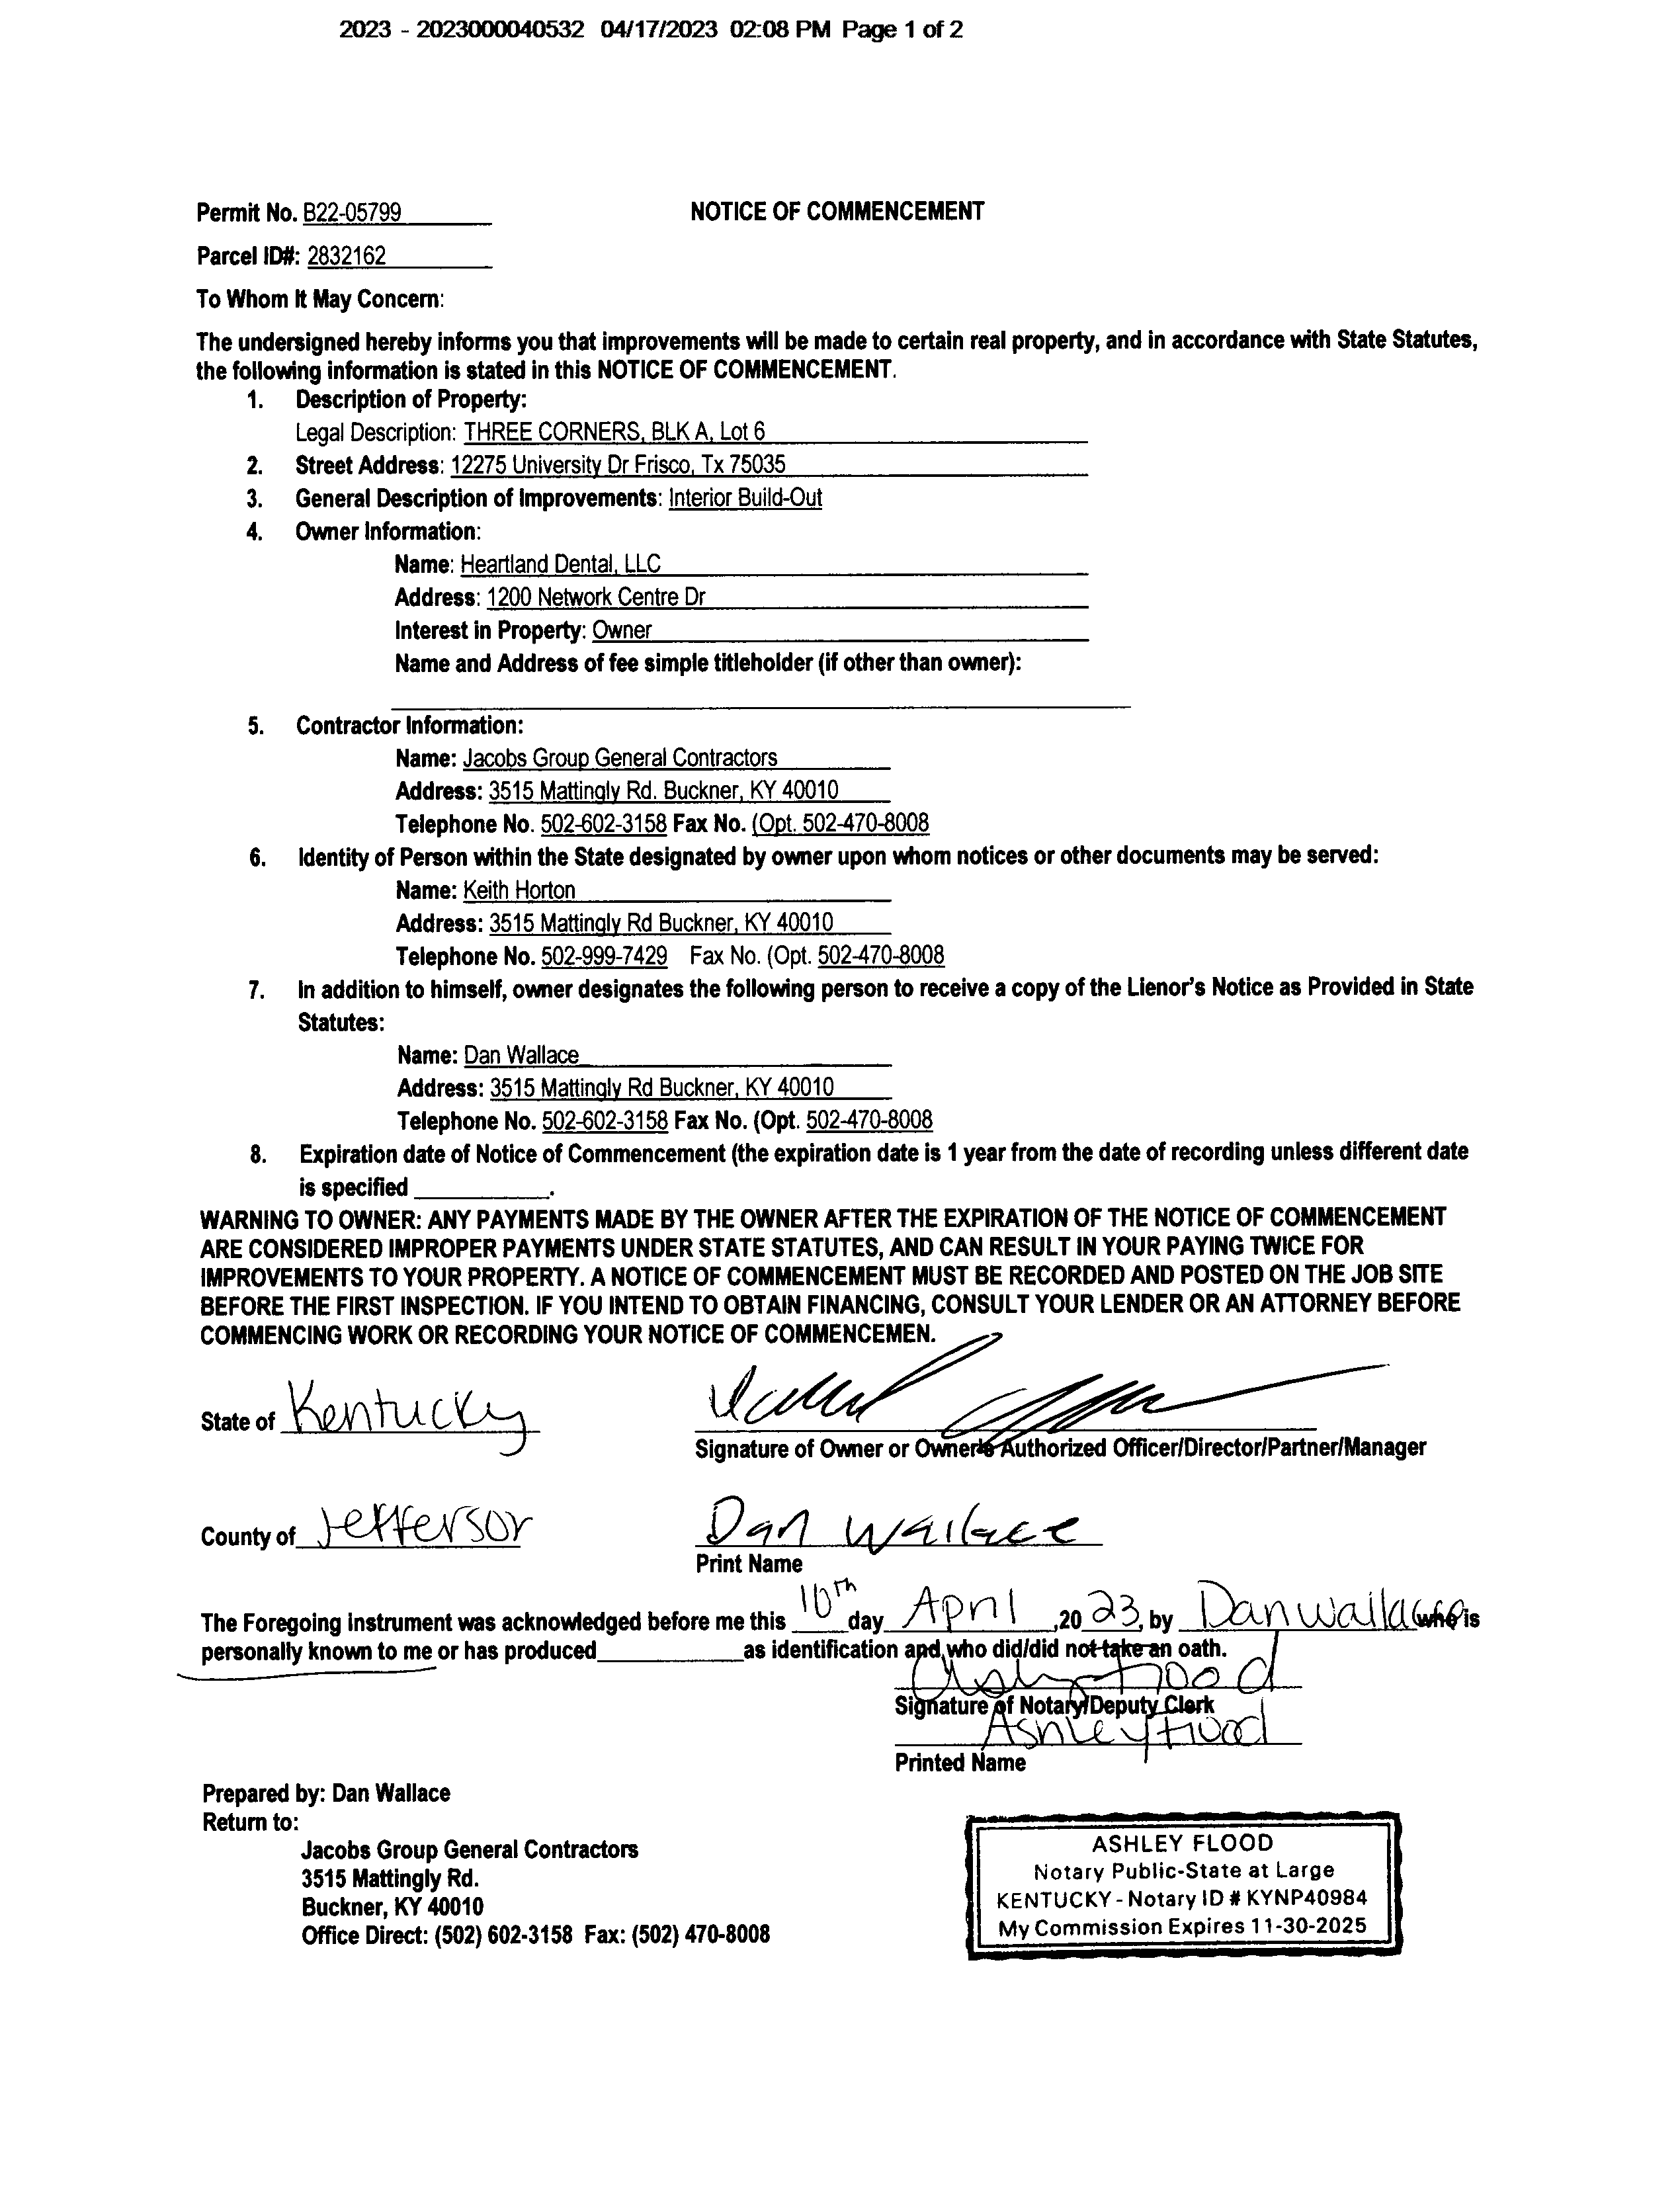 2023 - 2023000040532 04/17/2023 02:08 PM Page 1 of 2
Permit No. B22-05799 NOTICE OF COMMENCEMENT
Parcel ID#: 2832162
To Whom It May Concern:
The undersigned hereby informs you that improvements will be made to certain real property, and in accordance with State Statutes,
the following information is stated in this NOTICE OF COMMENCEMENT.
1. Description of Property:
Legal Description: THREE CORNERS, BLK A, Lot 6
2. Street Address: 12275 University Dr Frisco, Tx 75035
3. General Description of Improvements: Interior Build-Out
4. Owner Information:
Name: Heartland Dental, LLC
Address: 1200 Network Centre Dr
Interest in Property: Owner
Name and Address of fee simple titleholder (if other than owner):
5. Contractor Information:
Name: Jacobs Group General Contractors
Address: 3515 Mattingly Rd. Buckner, KY 40010
Telephone No. 502-602-3158 Fax No. (Opt. 502-470-8008
6. Identity of Person within the State designated by owner upon whom notices or other documents may be served:
Name: Keith Horton
Address: 3515 Mattingly Rd Buckner, KY 40010
Telephone No. 502-999-7429 Fax No. (Opt. 502-470-8008
7. In addition to himself, owner designates the following person to receive a copy of the Lienor's Notice as Provided in State
Statutes:
Name: Dan Wallace
Address: 3515 Mattingly Rd Buckner, KY 40010
Telephone No. 502-602-3158 Fax No. (Opt. 502-470-8008
8. Expiration date of Notice of Commencement (the expiration date is 1 year from the date of recording unless different date
is specified __________.
WARNING TO OWNER: ANY PAYMENTS MADE BY THE OWNER AFTER THE EXPIRATION OF THE NOTICE OF COMMENCEMENT
ARE CONSIDERED IMPROPER PAYMENTS UNDER STATE STATUTES, AND CAN RESULT IN YOUR PAYING TWICE FOR
IMPROVEMENTS TO YOUR PROPERTY. A NOTICE OF COMMENCEMENT MUST BE RECORDED AND POSTED ON THE JOB SITE
BEFORE THE FIRST INSPECTION. IF YOU INTEND TO OBTAIN FINANCING, CONSULT YOUR LENDER OR AN ATTORNEY BEFORE
COMMENCING WORK OR RECORDING YOUR NOTICE OF COMMENCEMEN.
State of Kentucky
Signature of Owner or Owner's Authorized Officer/Director/Partner/Manager
County of Jefferson Dan Wallace
Print Name
The Foregoing instrument was acknowledged before me this 10th day April ,20 23, by Dan Wallace who is
personally known to me or has produced__________as identification and who did/did not take an oath.
Ashley Flood
Signature of Notary/Deputy Clerk
Ashley Flood
Printed Name
Prepared by: Dan Wallace
Return to:
Jacobs Group General Contractors
3515 Mattingly Rd.
Buckner, KY 40010
Office Direct: (502) 602-3158 Fax: (502) 470-8008
ASHLEY FLOOD
Notary Public-State at Large
KENTUCKY - Notary ID # KYNP40984
My Commission Expires 11-30-2025